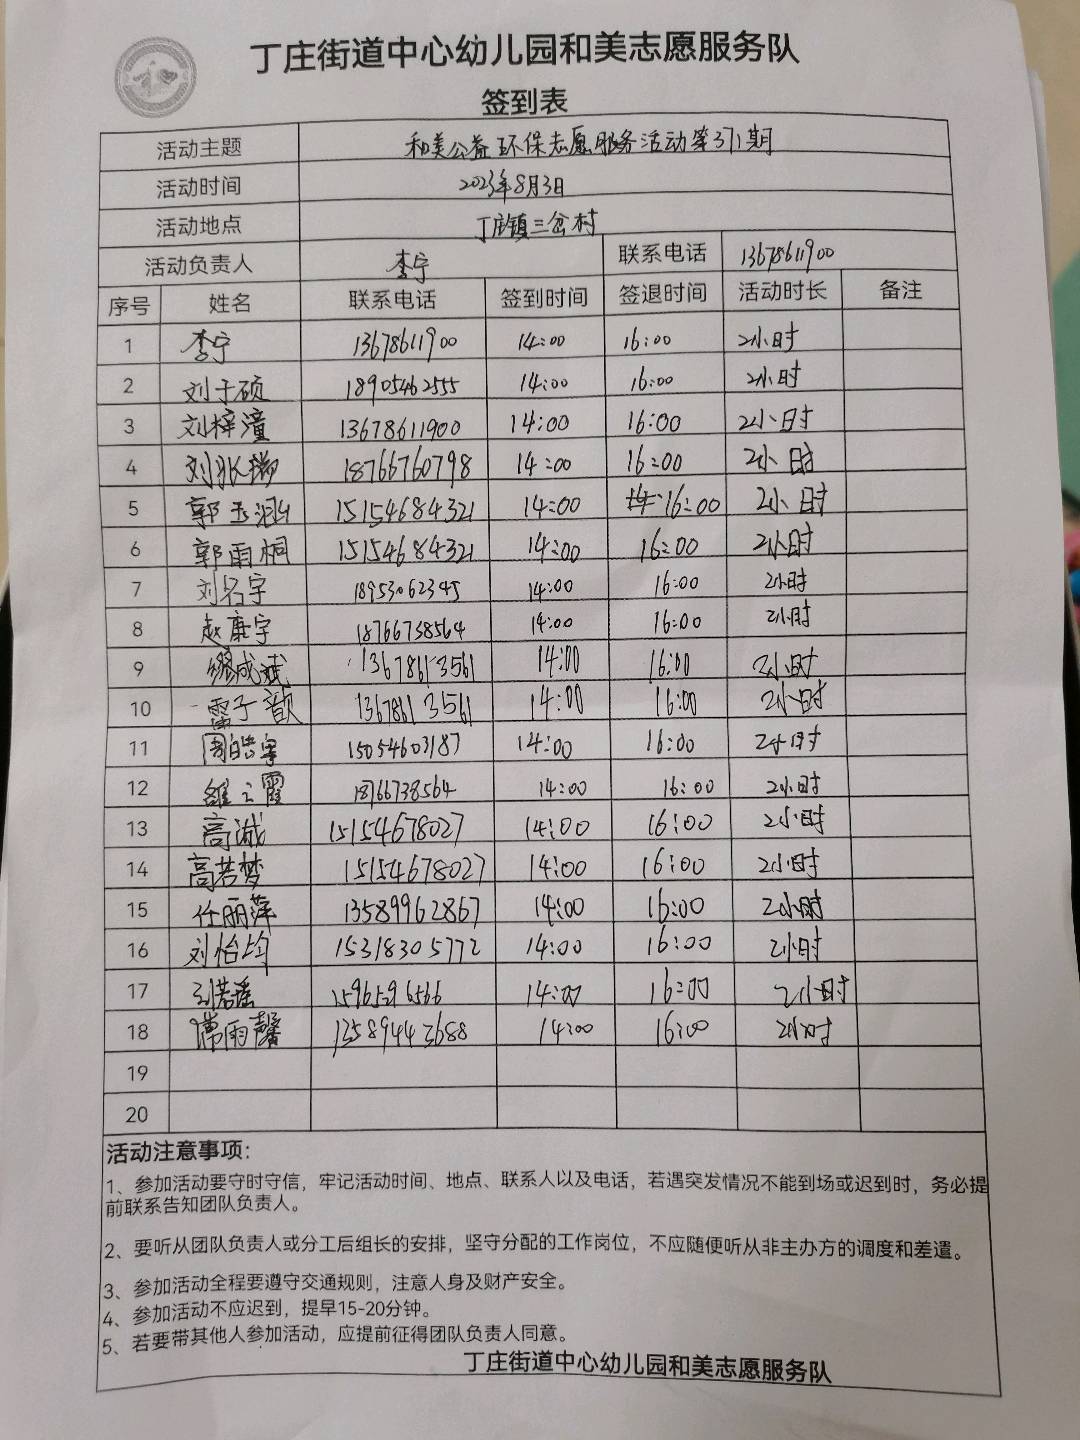 丁庄街道中心幼儿园和美志愿服务队
签到表
活动主题 和美公益环保志愿服务活动第371期
活动时间 2023年8月3日
活动地点 丁庄镇三岔村
活动负责人 李宁 联系电话 13678611900
序号 姓名 联系电话 签到时间 签退时间 活动时长 备注
1 李宁 13678611900 14:00 16:00 2小时
2 刘于硕 18905462555 14:00 16:00 2小时
3 刘梓潼 13678611900 14:00 16:00 2小时
4 18766760798 14:00 16:00 2小时
5 郭玉 15154684321 14:00 16:00 2小时
6 郭雨桐 15154684321 14:00 16:00 2小时
7 刘名宇 18953062345 14:00 16:00 2小时
8 赵康宇 18766738564 14:00 16:00 2小时
9 13678613561 14:00 16:00 2小时
10 子歆 13678613561 14:00 16:00 2小时
11 周皓宇 15054603187 14:00 16:00 2小时
12 云霞 18766738564 14:00 16:00 2小时
13 高诚 15154678027 14:00 16:00 2小时
14 高若梦 15154678027 14:00 16:00 2小时
15 任丽萍 13589962867 14:00 16:00 2小时
16 刘怡均 15318305772 14:00 16:00 2小时
17 若瑶 15965296566 14:00 16:00 2小时
18 常雨馨 13589443688 14:00 16:00 2小时
19
20
活动注意事项：
1、参加活动要守时守信，牢记活动时间、地点、联系人以及电话，若遇突发情况不能到场或迟到时，务必提
前联系告知团队负责人。
2、要听从团队负责人或分工后组长的安排，坚守分配的工作岗位，不应随便听从非主办方的调度和差遣。
3、参加活动全程要遵守交通规则，注意人身及财产安全。
4、参加活动不应迟到，提早15-20分钟。
5、若要带其他人参加活动，应提前征得团队负责人同意。
丁庄街道中心幼儿园和美志愿服务队